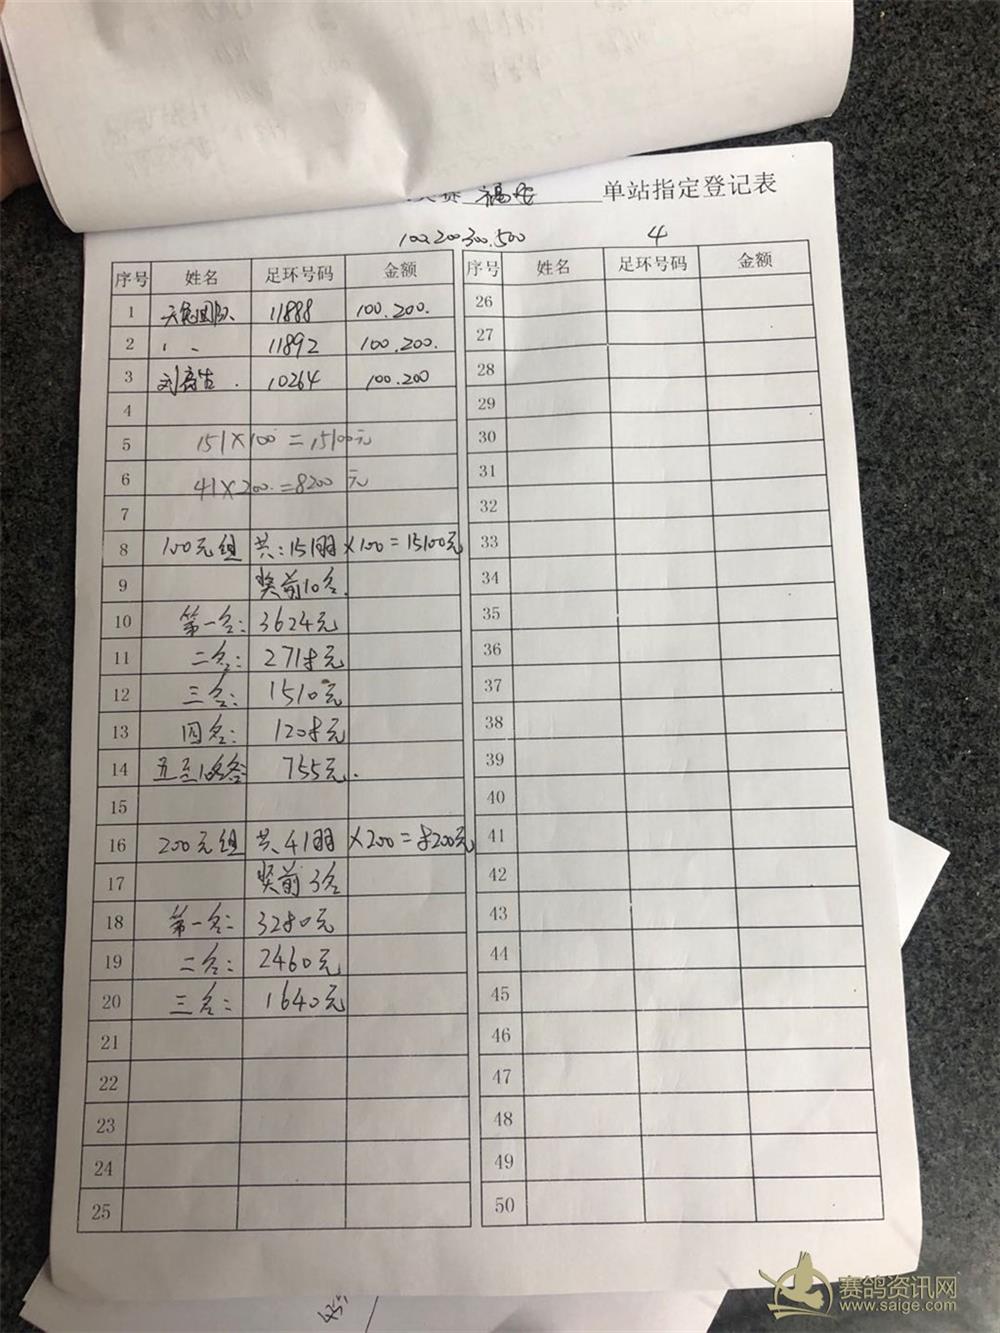 赛 福安 单站指定登记表
100.200.300.500 4
序号 姓名 足环号码 金额 序号 姓名 足环号码 金额
1 11888 100.200. 26
2 〃 11892 100.200. 27
3 10264 100.200 28
4 29
5 151×100=15100元 30
6 41×200.=8200元 31
7 32
8 100元组 共:151羽×100=15100元 33
9 奖前10名. 34
10 第一名: 3624元 35
11 二名: 2718元 36
12 三名: 1510元 37
13 四名: 1208元 38
14 五至10名各 755元. 39
15 40
16 200元组 共41羽×200=8200元 41
17 奖前3名 42
18 第一名: 3280元 43
19 二名: 2460元 44
20 三名: 1640元 45
21 46
22 47
23 48
24 49
25 50
赛鸽资讯网
www.saige.com